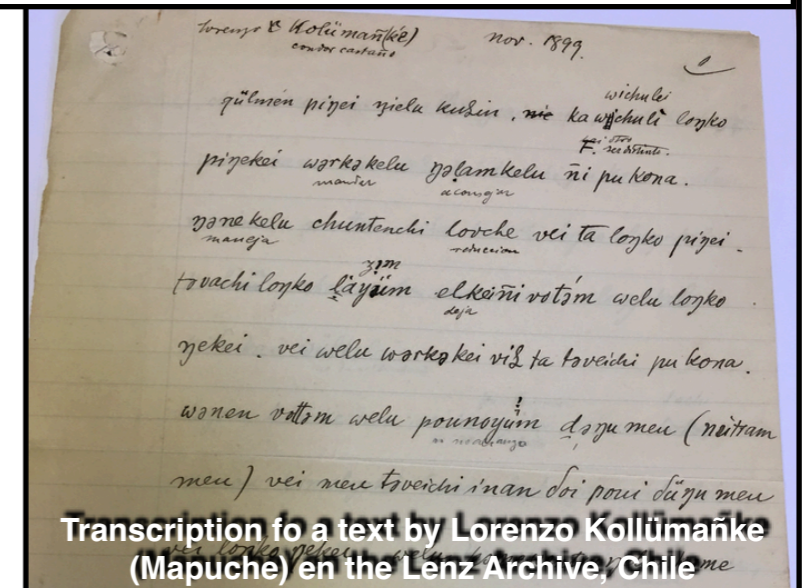 Lorenzo Kolümañ(ké)
condor castaño
nov. 1899.
wichulei
gülmén piŋei ŋielu kušin . nie ka wichuli loŋko
F. ser distinto.
piŋekei wərkəkelu ŋəlamkelu ñi pu kona.
mandar aconsejar
ŋənekelu chuntenchi lovche vei ta loŋko piŋei -
maneja reduccion
təvachi loŋko elkeiñi votəm welu loŋko
deja
ŋekei . vei welu wərkəkei viš ta təveichi pu kona.
wənen votəm welu pounoyüm dəŋu meu (neütram
meu) vei meu təveichi inan doi poui düŋu meu
vei loŋko ŋekei welu
Transcription fo a text by Lorenzo Kollümañke
(Mapuche) en the Lenz Archive, Chile